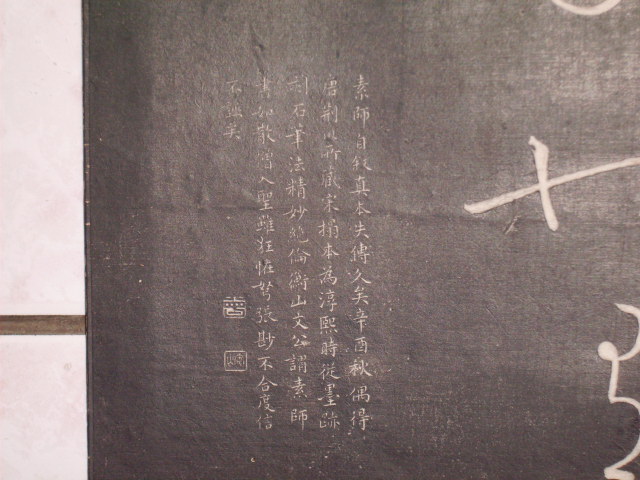 素師自叙真本失傳久矣辛酉秋偶得
唐荆川所藏宋搨本為淳熙時從墨跡
刻石筆法精妙絶倫衡山文公謂素師
書如散僧入聖雖狂怪弩張尠不合度信
不誣矣
十